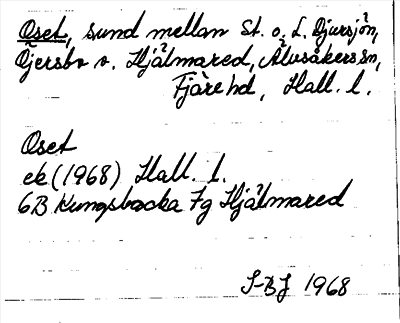 Oset, sund mellan St. o. L. Djursjön,
Öjersbo o. Hjälmared, Älvsåkers sn,
Fjäre hd, Hall. l.
Oset
ek (1968) Hall. l.
6B Kungsbacka 7g Hjälmared
S-BJ 1968